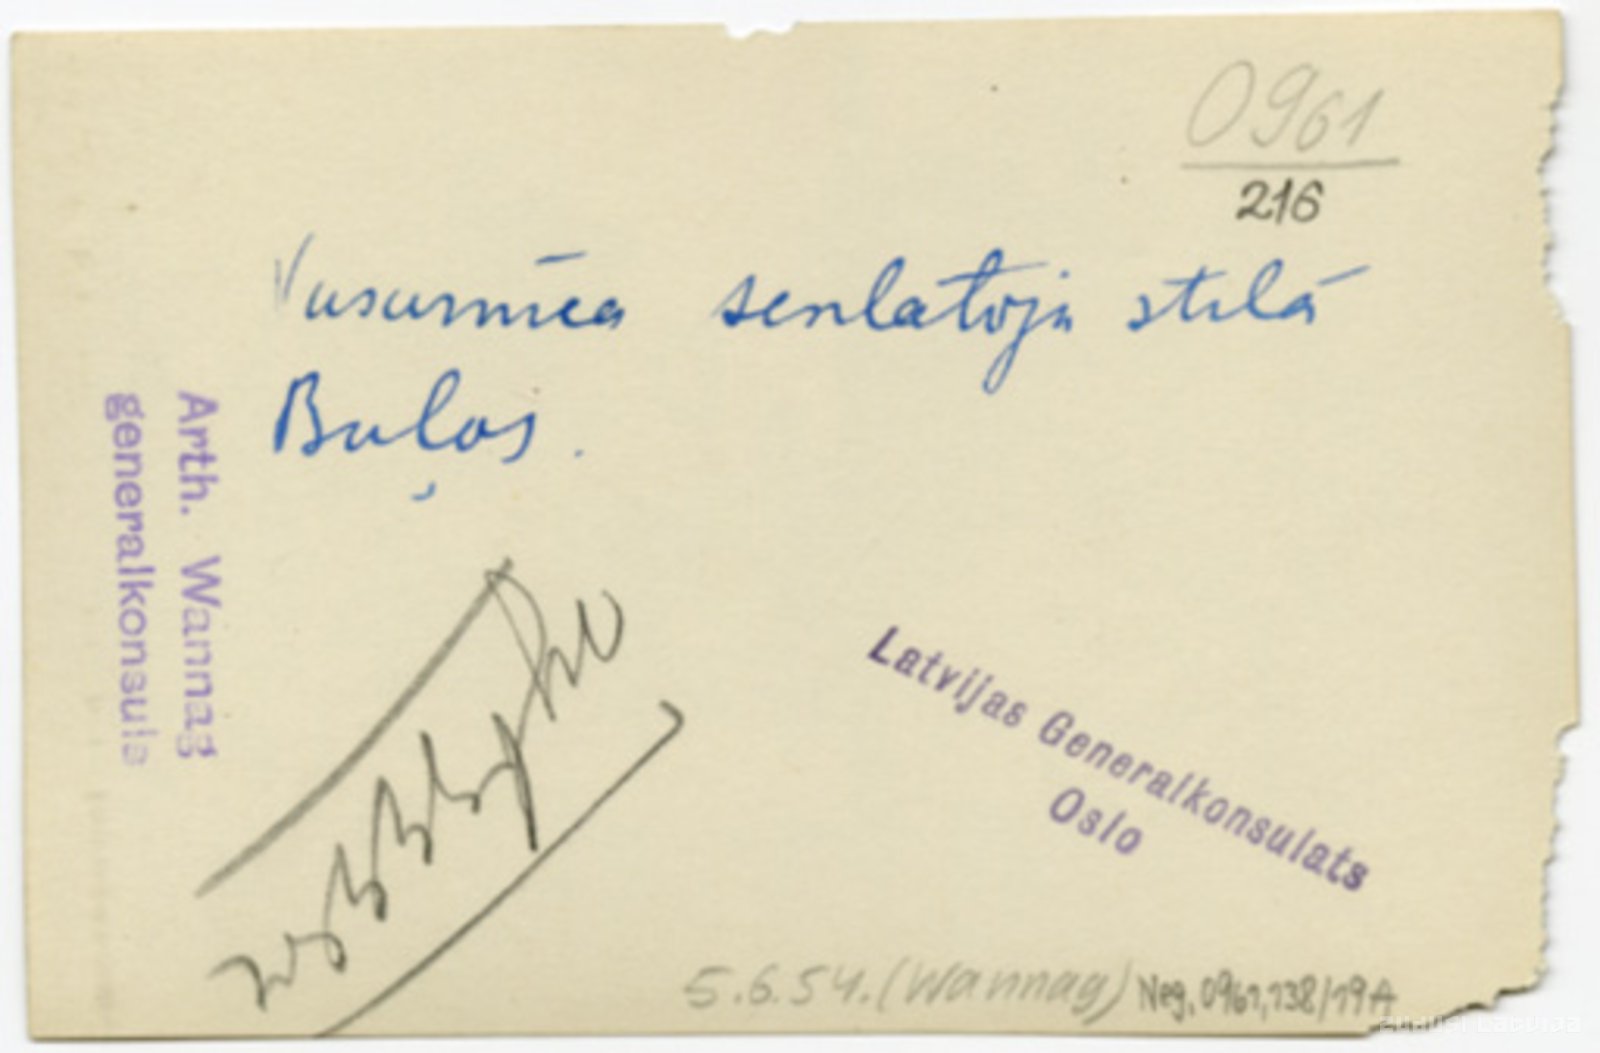 0961
216
Vasarnīca senlatvju stilā
Buļļos.
Arth. Wannag
generalkonsuls
Latvijas Generalkonsulats
Oslo
5.6.54. (Wannag) Neg. 0961,138/19A
zudusi Latvija